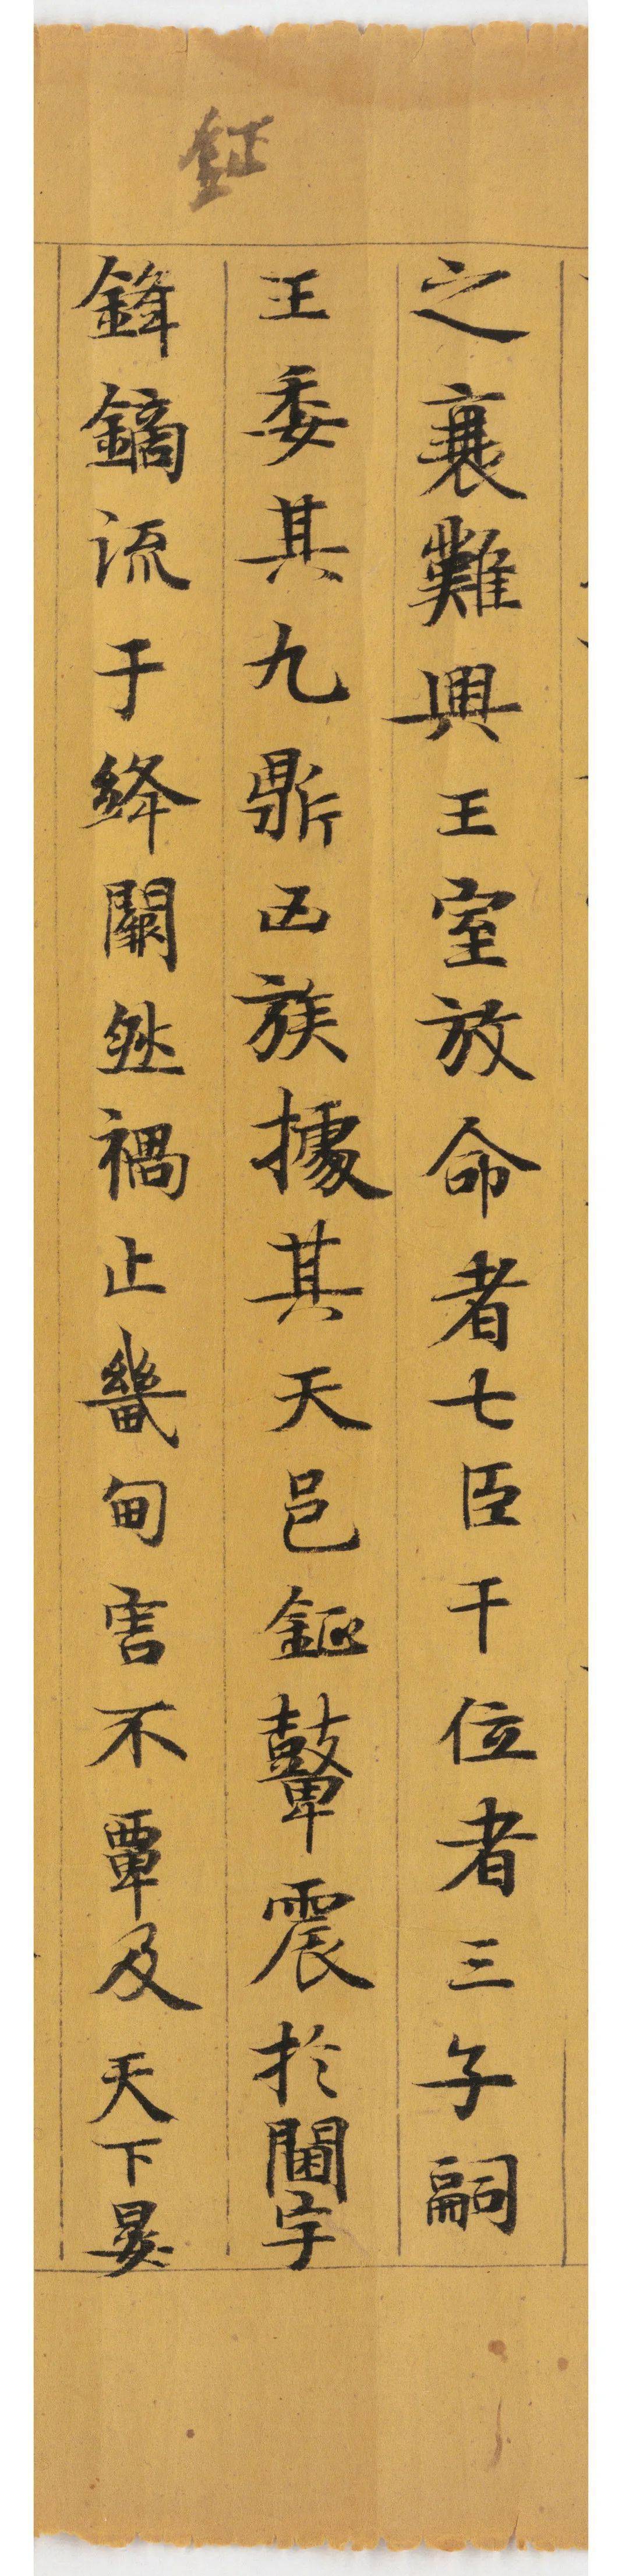 鉦
之襄難興王室放命者七臣干位者三子嗣
王委其九鼎凶族據其天邑鉦鼙震於閫宇
鋒鏑流于絳闕然禍止畿甸害不覃及天下晏